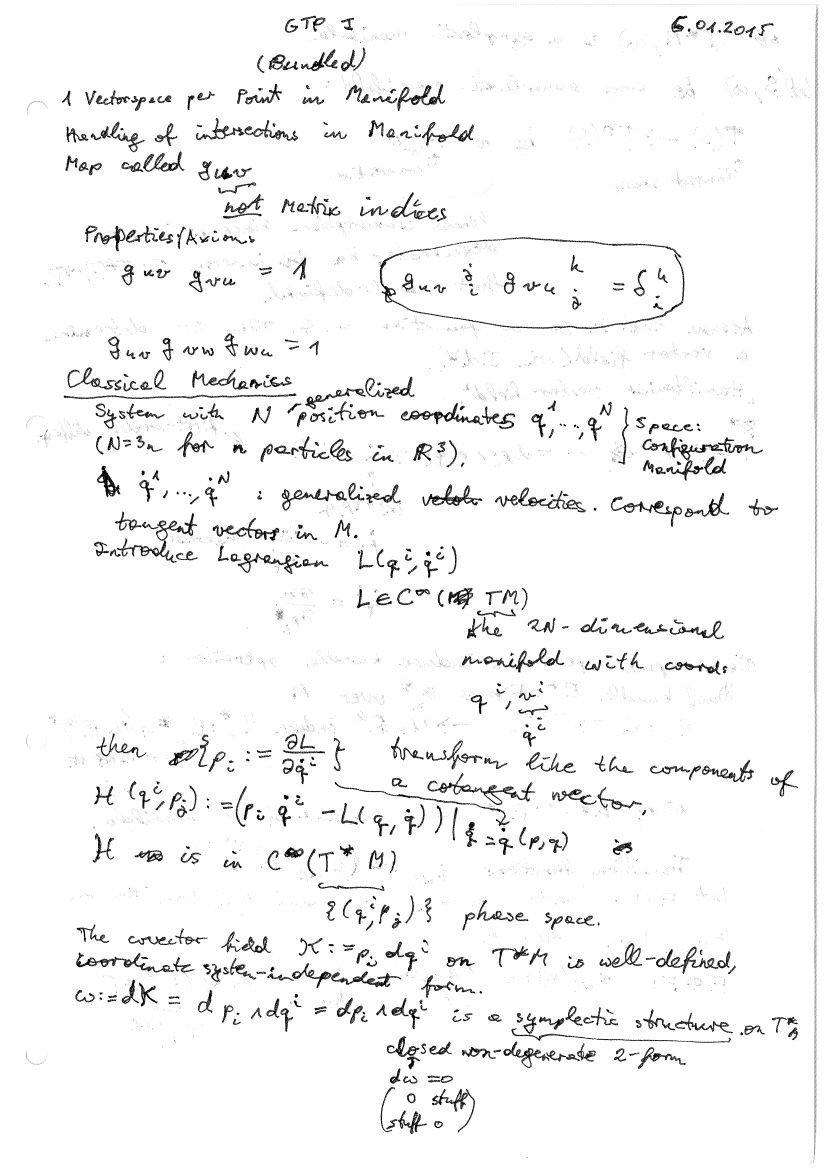 GTP I 6.01.2015
(Bundled)
1 Vectorspace per Point in Manifold
Handling of intersections in Manifold
Map called g_uv
not Matrix indices
Properties/Axioms
g_uv g_vu = 1
g_uv ^j_i g_vu ^k_j = δ^k_i
g_uv g_vw g_wu = 1
Classical Mechanics
System with N generalized position coordinates q^1,...,q^N } Space:
(N=3n for n particles in ℝ^3). Configuration
Manifold
q̇^1,...,q̇^N : generalized velocities. Correspond to
tangent vectors in M.
Introduce Lagrangian L(q^i, q̇^i)
L ∈ C^∞(TM)
the 2N-dimensional
manifold with coords.
q^i, v^i
q̇^i
then {p_i := ∂L/∂q̇^i} transform like the components of
a cotangent vector,
H(q^i, p_j) := (p_i q̇^i - L(q, q̇))|_q̇=q̇(p,q)
H is in C^∞(T* M)
{(q^i, p_j)} phase space.
The covector field K := p_i dq^i on T*M is well-defined,
coordinate system-independent form.
ω := dK = d p_i ∧ dq^i = dp_i ∧ dq^i is a symplectic structure on T*
closed non-degenerate 2-form
dω = 0
(0 stuff
stuff 0)